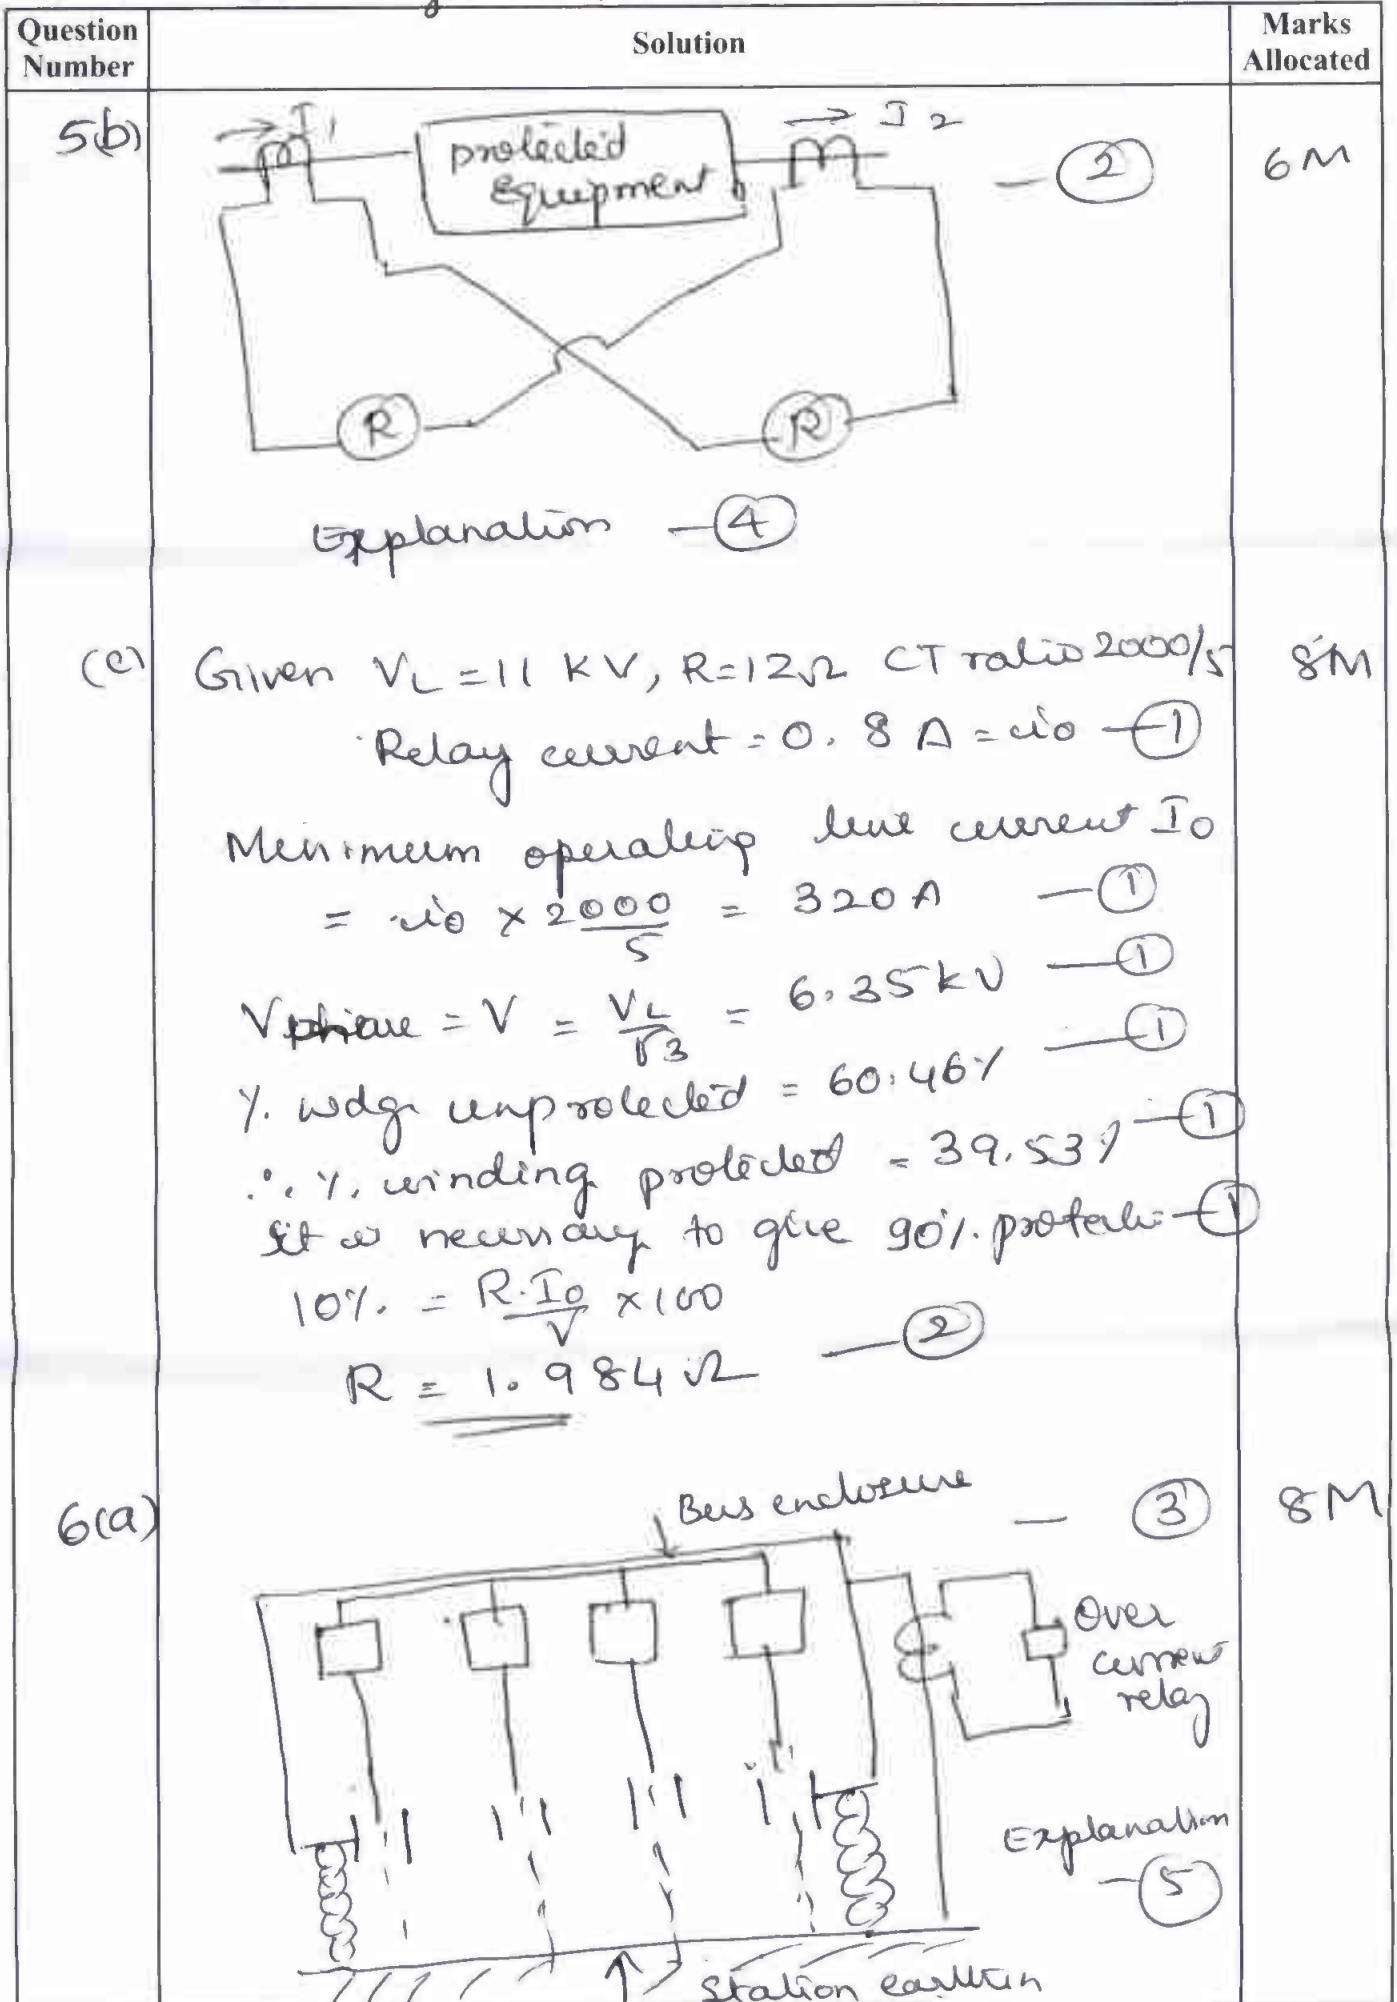 Question Number
Solution
Marks Allocated
5(b)
I1
protected equipment
I2
— 2
6M
R
R
Explanation — 4
(c)
Given VL = 11 KV, R=12Ω CT ratio 2000/5
8M
Relay current = 0.8 A = io — 1
Minimum operating line current Io
= io × 2000/5 = 320 A — 1
Vphase = V = VL/√3 = 6.35 kV — 1
% wdg unprotected = 60.46% — 1
∴ % winding protected = 39.53% — 1
It is necessary to give 90% — 1
10% = R.Io/V × 100
R = 1.984 Ω — 2
6(a)
Bus enclosure
— 3
8M
Over
current
relay
Explanation
— 5
Station